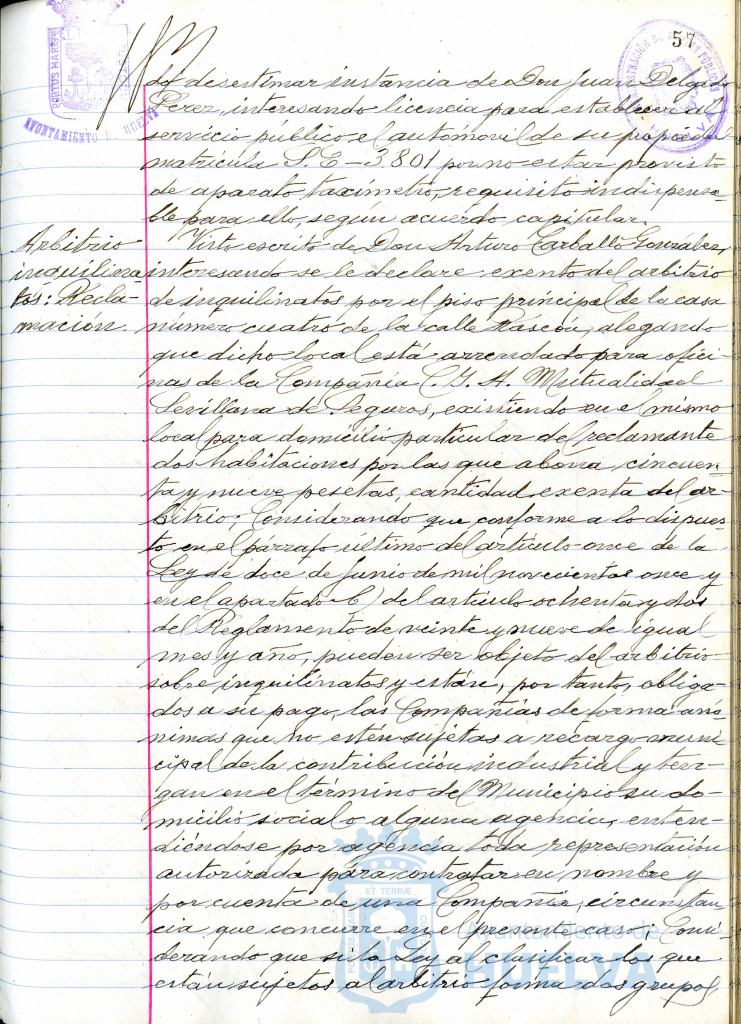 57
PORTUS MARIS
AYUNTAMIENTO HUELVA
desestimar instancia de Don Juan Delgado
Perez, interesando licencia para establecer al
servicio público el automóvil de su propiedad
matrícula S.E-3.801 por no estar provisto
de aparato taxímetro, requisito indispensa-
ble para ello, según acuerdo capitular.
Arbitrio
inquilina-
tos: Recla-
mación.
Visto escrito de Don Arturo Carballo González,
interesando se le declare exento del arbitrio
de inquilinatos por el piso principal de la casa
número cuatro de la calle Rascón, alegando
que dicho local está arrendado para ofici-
nas de la Compañía Mutualidad
Sevillana de Seguros, existiendo en el mismo
local para domicilio particular del reclamante
dos habitaciones por las que abona cincuen-
ta y nueve pesetas, cantidad exenta del ar-
bitrio; Considerando que conforme a lo dispues-
to en el párrafo último del artículo once de la
Ley de doce de Junio de mil novecientos once y
en el apartado b) del artículo ochenta y dos
del Reglamento de veinte y nueve de igual
mes y año, pueden ser objeto del arbitrio
sobre inquilinatos y están, por tanto, obliga-
dos a su pago, las Compañías de forma anó-
nimas que no estén sujetas a recargo muni-
cipal de la contribución industrial y ten-
gan en el término del Municipio su do-
micilio social o alguna agencia, enten-
diéndose por agencia toda representación
autorizada para contratar en nombre y
por cuenta de una Compañía, circunstan-
cia que concurre en el presente caso; Consi-
derando que si la Ley al clasificar los que
están sujetos al arbitrio forma dos grupos,
ET TERRÆ
Ayuntamiento de
HUELVA